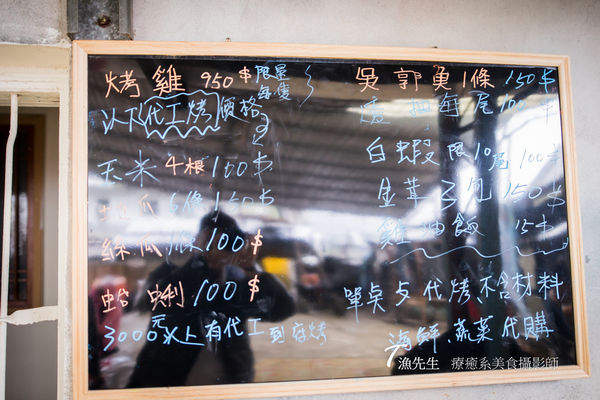 烤雞 950$ 限量
每隻
以下代工烤價格
玉米 4根 100$
地瓜 5條 150$
絲瓜 1條 100$
蛤蜊 100$
3000元以上有代工到府烤
吳郭魚1條 150$
每尾 100$
白蝦 限10尾 100$
金茸 3包 150$
雞油飯 15$
單点与代烤、不含材料
海鮮、蔬菜代購
漁先生 療癒系美食攝影師